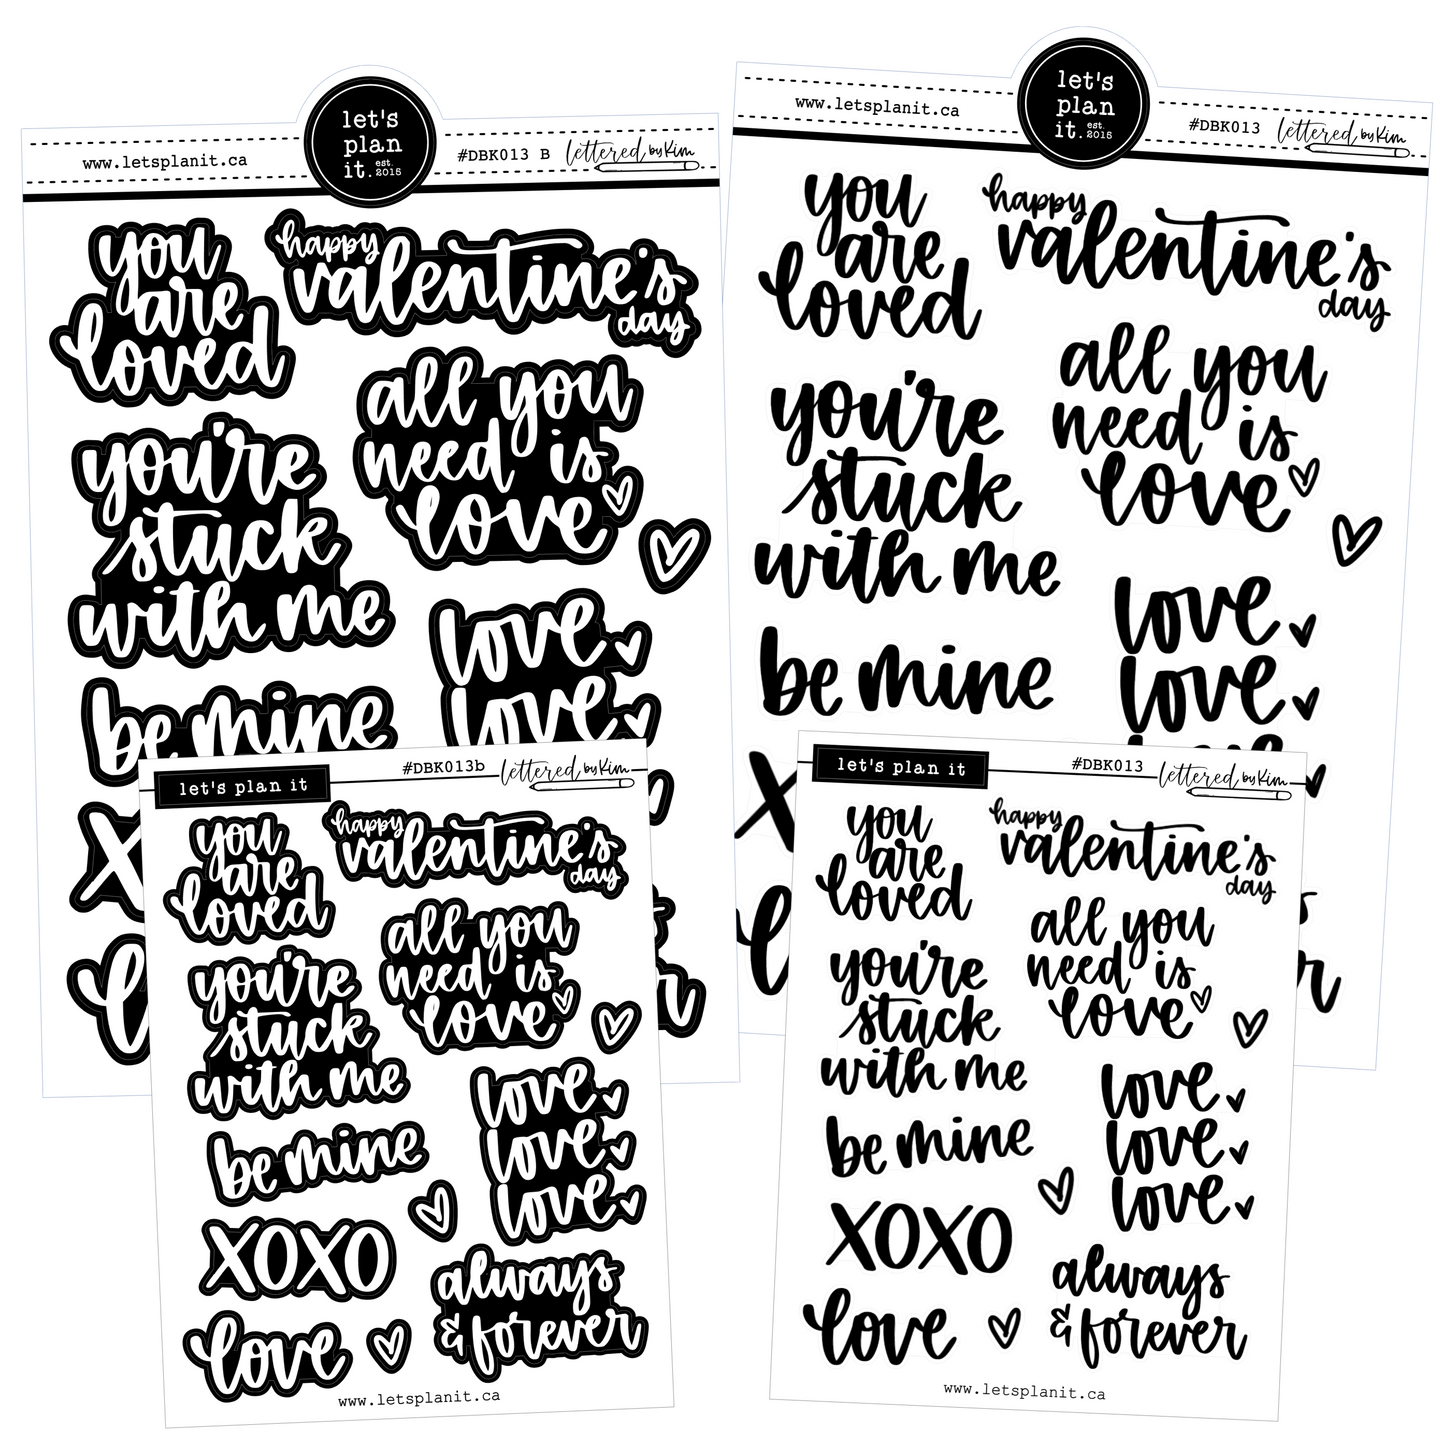 let's
plan
it. est. 2015
www.letsplanit.ca
#DBK013 B lettered by Kim
you
are
loved
happy
valentine's
day
you're
stuck
with me
all you
need is
love
be mine
love
love
let's
plan
it. est. 2015
www.letsplanit.ca
#DBK013 lettered by Kim
you
are
loved
happy
valentine's
day
you're
stuck
with me
all you
need is
love
be mine
love
love
let's plan it
#DBK013b lettered by Kim
you
are
loved
happy
valentine's
day
you're
stuck
with me
all you
need is
love
be mine
love
love
love
XOXO
always
& forever
love
www.letsplanit.ca
let's plan it
#DBK013 lettered by Kim
you
are
loved
happy
valentine's
day
you're
stuck
with me
all you
need is
love
be mine
love
love
love
XOXO
always
& forever
love
www.letsplanit.ca